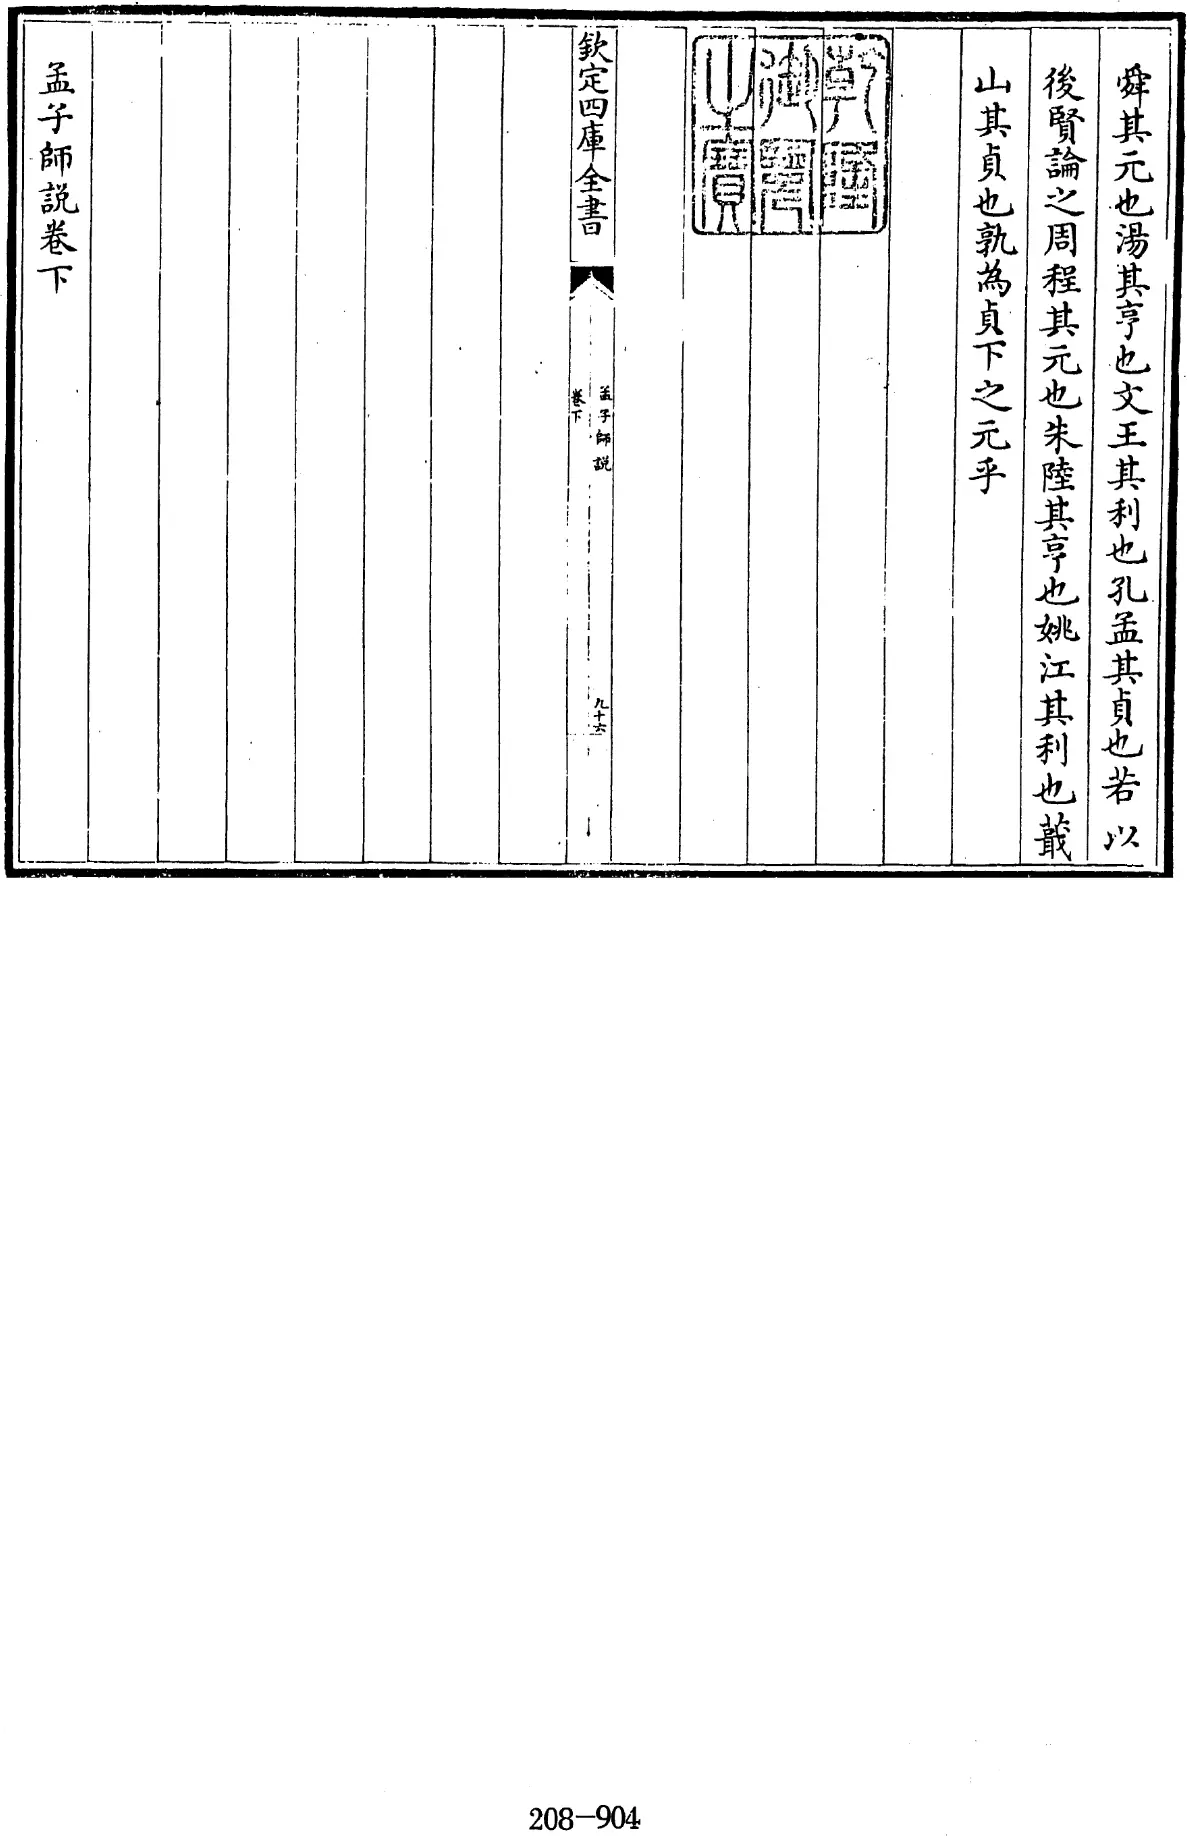 舜其元也湯其亨也文王其利也孔孟其貞也若以
後賢論之周程其元也朱陸其亨也姚江其利也蕺
山其貞也孰為貞下之元乎
乾隆
御覽
之寶
欽定四庫全書
孟子師説
卷下
九十六
孟子師説卷下
208-904